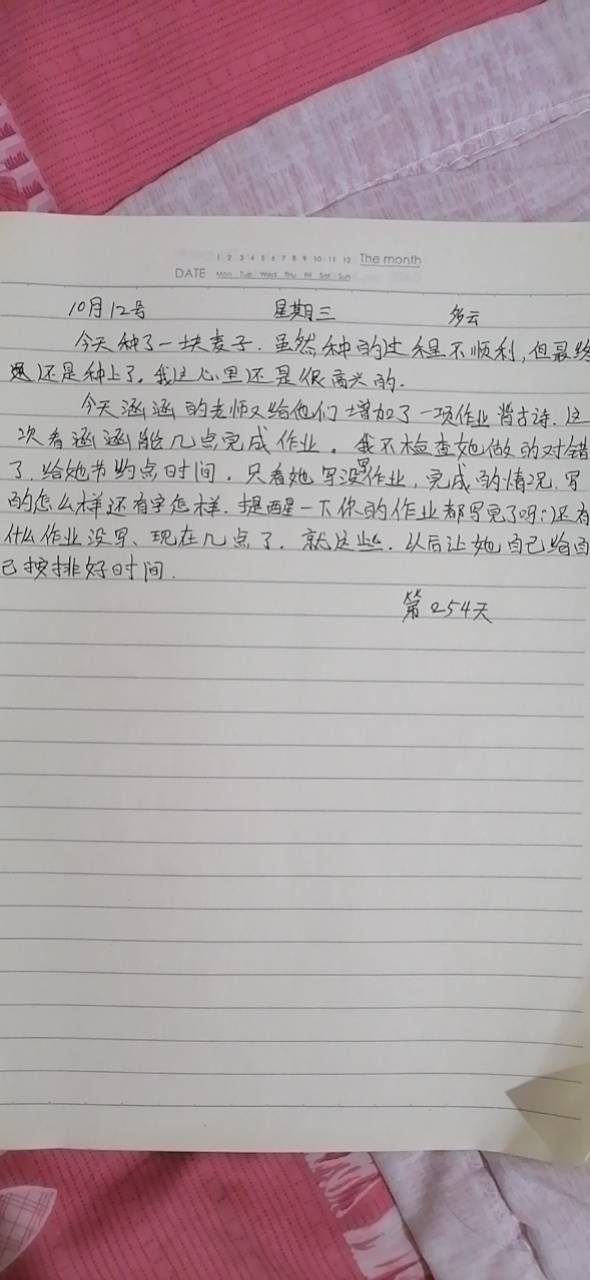 1 2 3 4 5 6 7 8 9 10 11 12 The month
DATE Mon Tue Wed Thu Fri Sat Sun
10月12号 星期三 多云
今天种了一块麦子.虽然种的过程不顺利,但最终
还是种上了.我这心里还是很高兴的.
今天涵涵的老师又给他们增加了一项作业背古诗.这
次看涵涵能几点完成作业。我不检查她做的对错
了.给她节约点时间.只看她写没写作业,完成的情况.写
的怎么样还有字怎样.提醒一下你的作业都写完了吗;还有
什么作业没写、现在几点了.就这些.以后让她自己给自
己按排好时间.
第254天